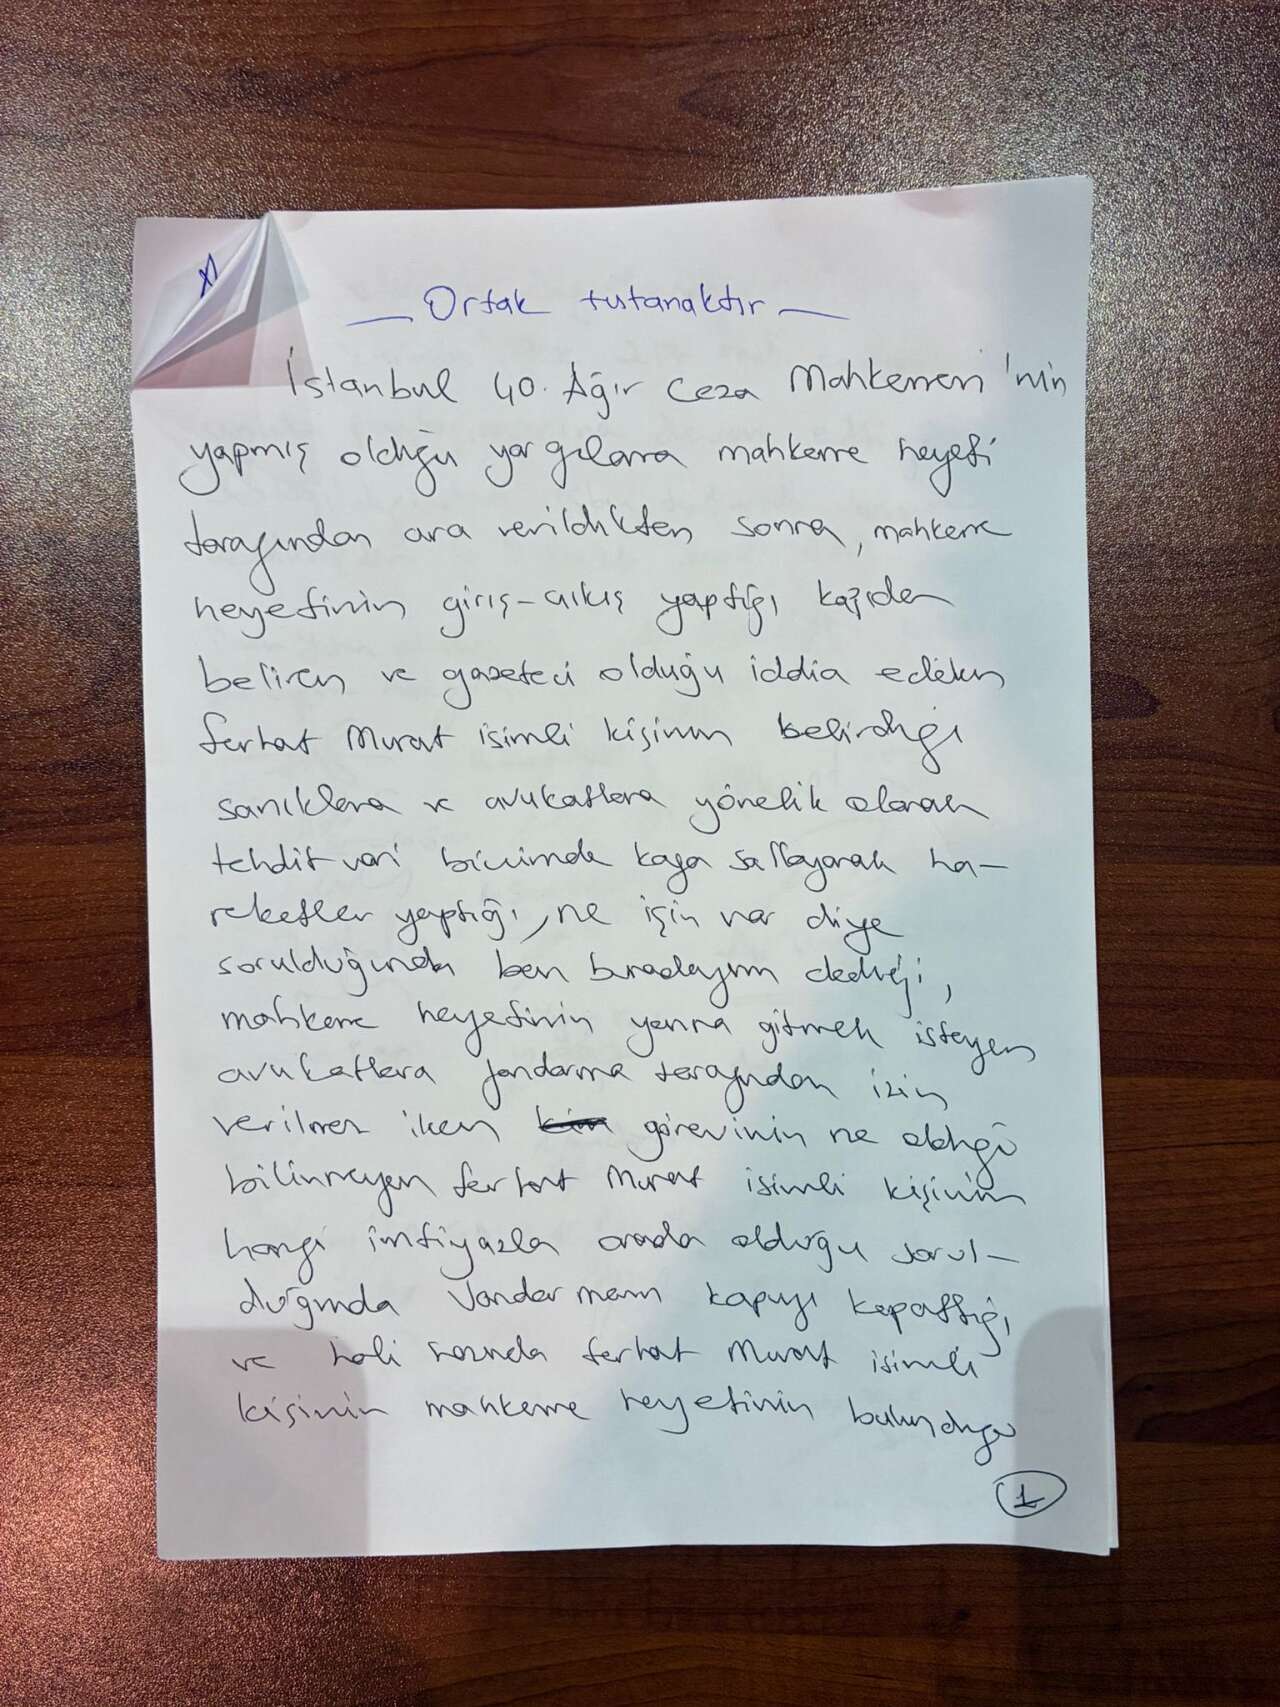 Ortak tutanaktır
İstanbul 40. Ağır Ceza Mahkemesi'nin
yapmış olduğu yargılama mahkeme heyeti
tarafından ara verildikten sonra, mahkeme
heyetinin giriş-çıkış yaptığı kapıdan
beliren ve gazeteci olduğu iddia edilen
Ferhat Murat isimli kişinin belirdiği
sanıklara ve avukatlara yönelik olarak
tehditvari biçimde kafa sallayarak ha-
reketler yaptığı, ne işin var diye
sorulduğunda ben buradayım dediği,
mahkeme heyetinin yanına gitmek isteyen
avukatlara Jandarma tarafından izin
verilmez iken görevinin ne olduğu
bilinmeyen Ferhat Murat isimli kişinin
hangi imtiyazla orada olduğu sorul-
duğunda Jandarmanın kapıyı kapattığı
ve hali hazırda Ferhat Murat isimli
kişinin mahkeme heyetinin bulunduğu
1